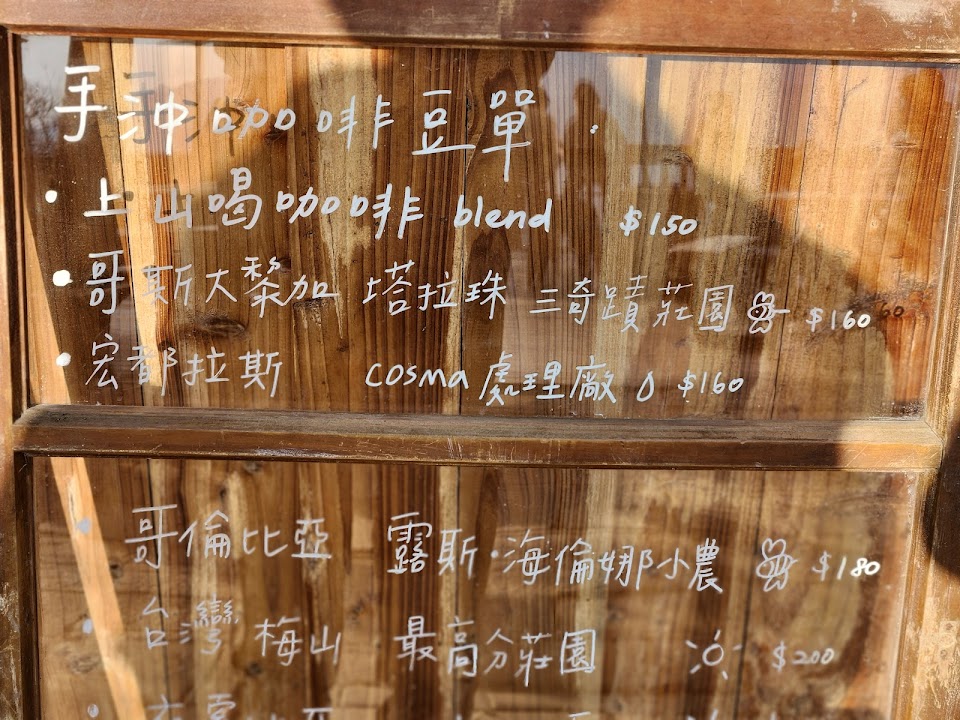 手沖咖啡豆單：
・上山喝咖啡 blend $150
・哥斯大黎加 塔拉珠 三奇蹟莊園 $160
・宏都拉斯 cosma 處理廠 $160
・哥倫比亞 露斯・海倫娜小農 $180
・台灣 梅山 最高分莊園 $200